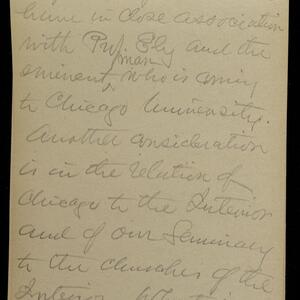 in close association
with Prof. Ely and the
man
eminent ^ who is coming
to Chicago University.
Another consideration
is in the relation of
Chicago to the Interior
and of our Seminary
to the churches of the
Interior.